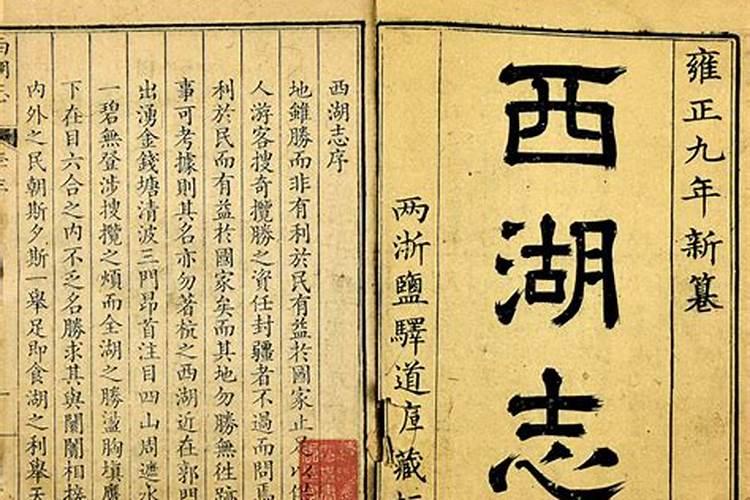 雍正九年新纂
西湖志
两浙鹽驛道庫藏板
西湖志序
地雖勝而非有利於民有益於國家止足以供
人游客搜奇攬勝之資任封疆者不過而問焉
利於民而有益於國家矣而其地勿勝無徃蹟
事可考據則其名亦勿著杭之西湖近在郭門
出湧金錢塘清波三門昂首注目四山周遮水
一碧無登涉搜攬之煩而全湖之勝盪胸填膺
下在目六合之內不乏名勝求其與闤闠相接
內外之民朝斯夕斯一舉足即食湖之利舉天
西湖志